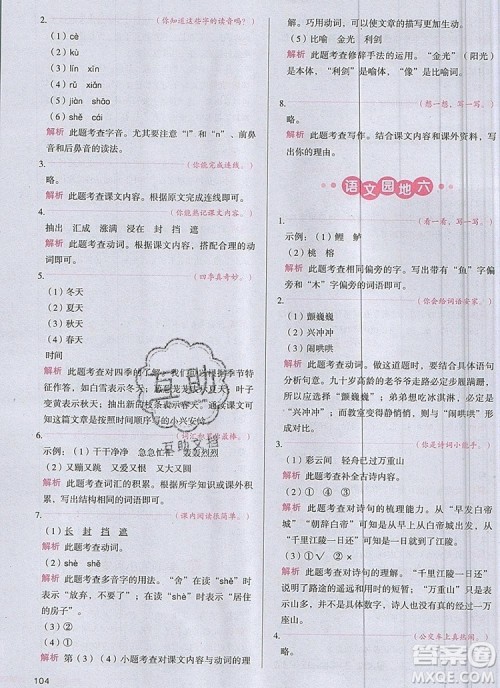 2.（你知道这些字的读音吗？）
（1）cè
（2）lín xìn
（3）kē
（4）rǔ xuān
（5）jiàn shāo
（6）shě bì
解析 此题考查字音。尤其要注意“l”和“n”、前鼻
音和后鼻音的读法。
3.（你能完成连线。）
略。
解析 此题考查课文内容。根据原文完成连线即可。
4.（你能熟记课文内容。）
抽出 汇成 浸满 封 挡 遮
解析 此题考查动词。根据课文内容，搭配合理的动
词即可。
5.（四季真奇妙。）
（1）冬天
（2）夏天
（3）秋天
（4）春天
时间
解析 此题考查对四季的了解。我们可以根据季节特
征作答，如白雪表示冬天，葱葱茏茏表示夏天，叶子
变黄表示秋天，抽出新的枝条表示春天。通读课文可
知这篇文章是按时间顺序来描写美丽的小兴安岭。
6.（词汇积累的最棒。）
（1）干干净净 急急忙忙 轰轰烈烈
（2）又蹦又跳 又大又圆 又高又大
解析 此题考查词汇的积累。根据所给词语的特点，
写出结构相同的词语即可。
7.（课内阅读很简单。）
（1）长 封 挡 遮
解析 此题考查动词。
（2）shě shè
解析 此题考查多音字的用法。“舍”在读“shě”时
表示“放弃，不要了”；读“shè”时，表示“居住
的房子”。
（3）①
（4）②
解析 第（3）（4）小题考查对课文内容与动词的理
104
解。巧用动词，可以使文章更生动。
（5）比喻 金光 利剑
解析 此题考查修辞手法的运用。“金光”（阳光）
是本体，“利剑”是喻体，“像”是比喻词。
8.（想一想，写一写。）
略。
解析 此题考查写作。结合课文内容和课外资料，写
出实际即可。
语文园地六
1.（看一看，写一写。）
示例：（1）鲤 鲈
（2）桃 榕
解析 此题考查相同偏旁的字。写出带有“鱼”字偏
旁和“木”字偏旁的词语即可。
2.（你会给词语安家。）
（1）颤巍巍
（2）兴冲冲
（3）闹哄哄
解析 此题考查动词。做这道题时，要根据具体语句
分析判断。九十多岁高龄的老爷爷走路的样子可以用
“颤巍巍”；弟弟拿来乐谱让我教他，他的心情是喜
悦的，填“兴冲冲”；而由教室变得静悄悄的，可以
反推出之前是喧闹的，用“闹哄哄”。
3.（你是诗词小能手。）
（1）彩云间 轻舟已过万重山
解析 此题考查补充古诗内容。
（2）
解析 此题考查对诗句的梳理能力。从“早发白帝
城”“朝辞白帝”可以看出作者早上从白帝城出发，
从“千里江陵一日还”可知傍晚到江陵。
（3）①√ ②×
解析 此题考查对诗句的理解。“千里江陵一日还”
写出了路途的遥远和用时的短暂，“万重山”表明了
有许多山，因此“万重”在这里不是实指。
4.（公交车上真热闹。）
略。